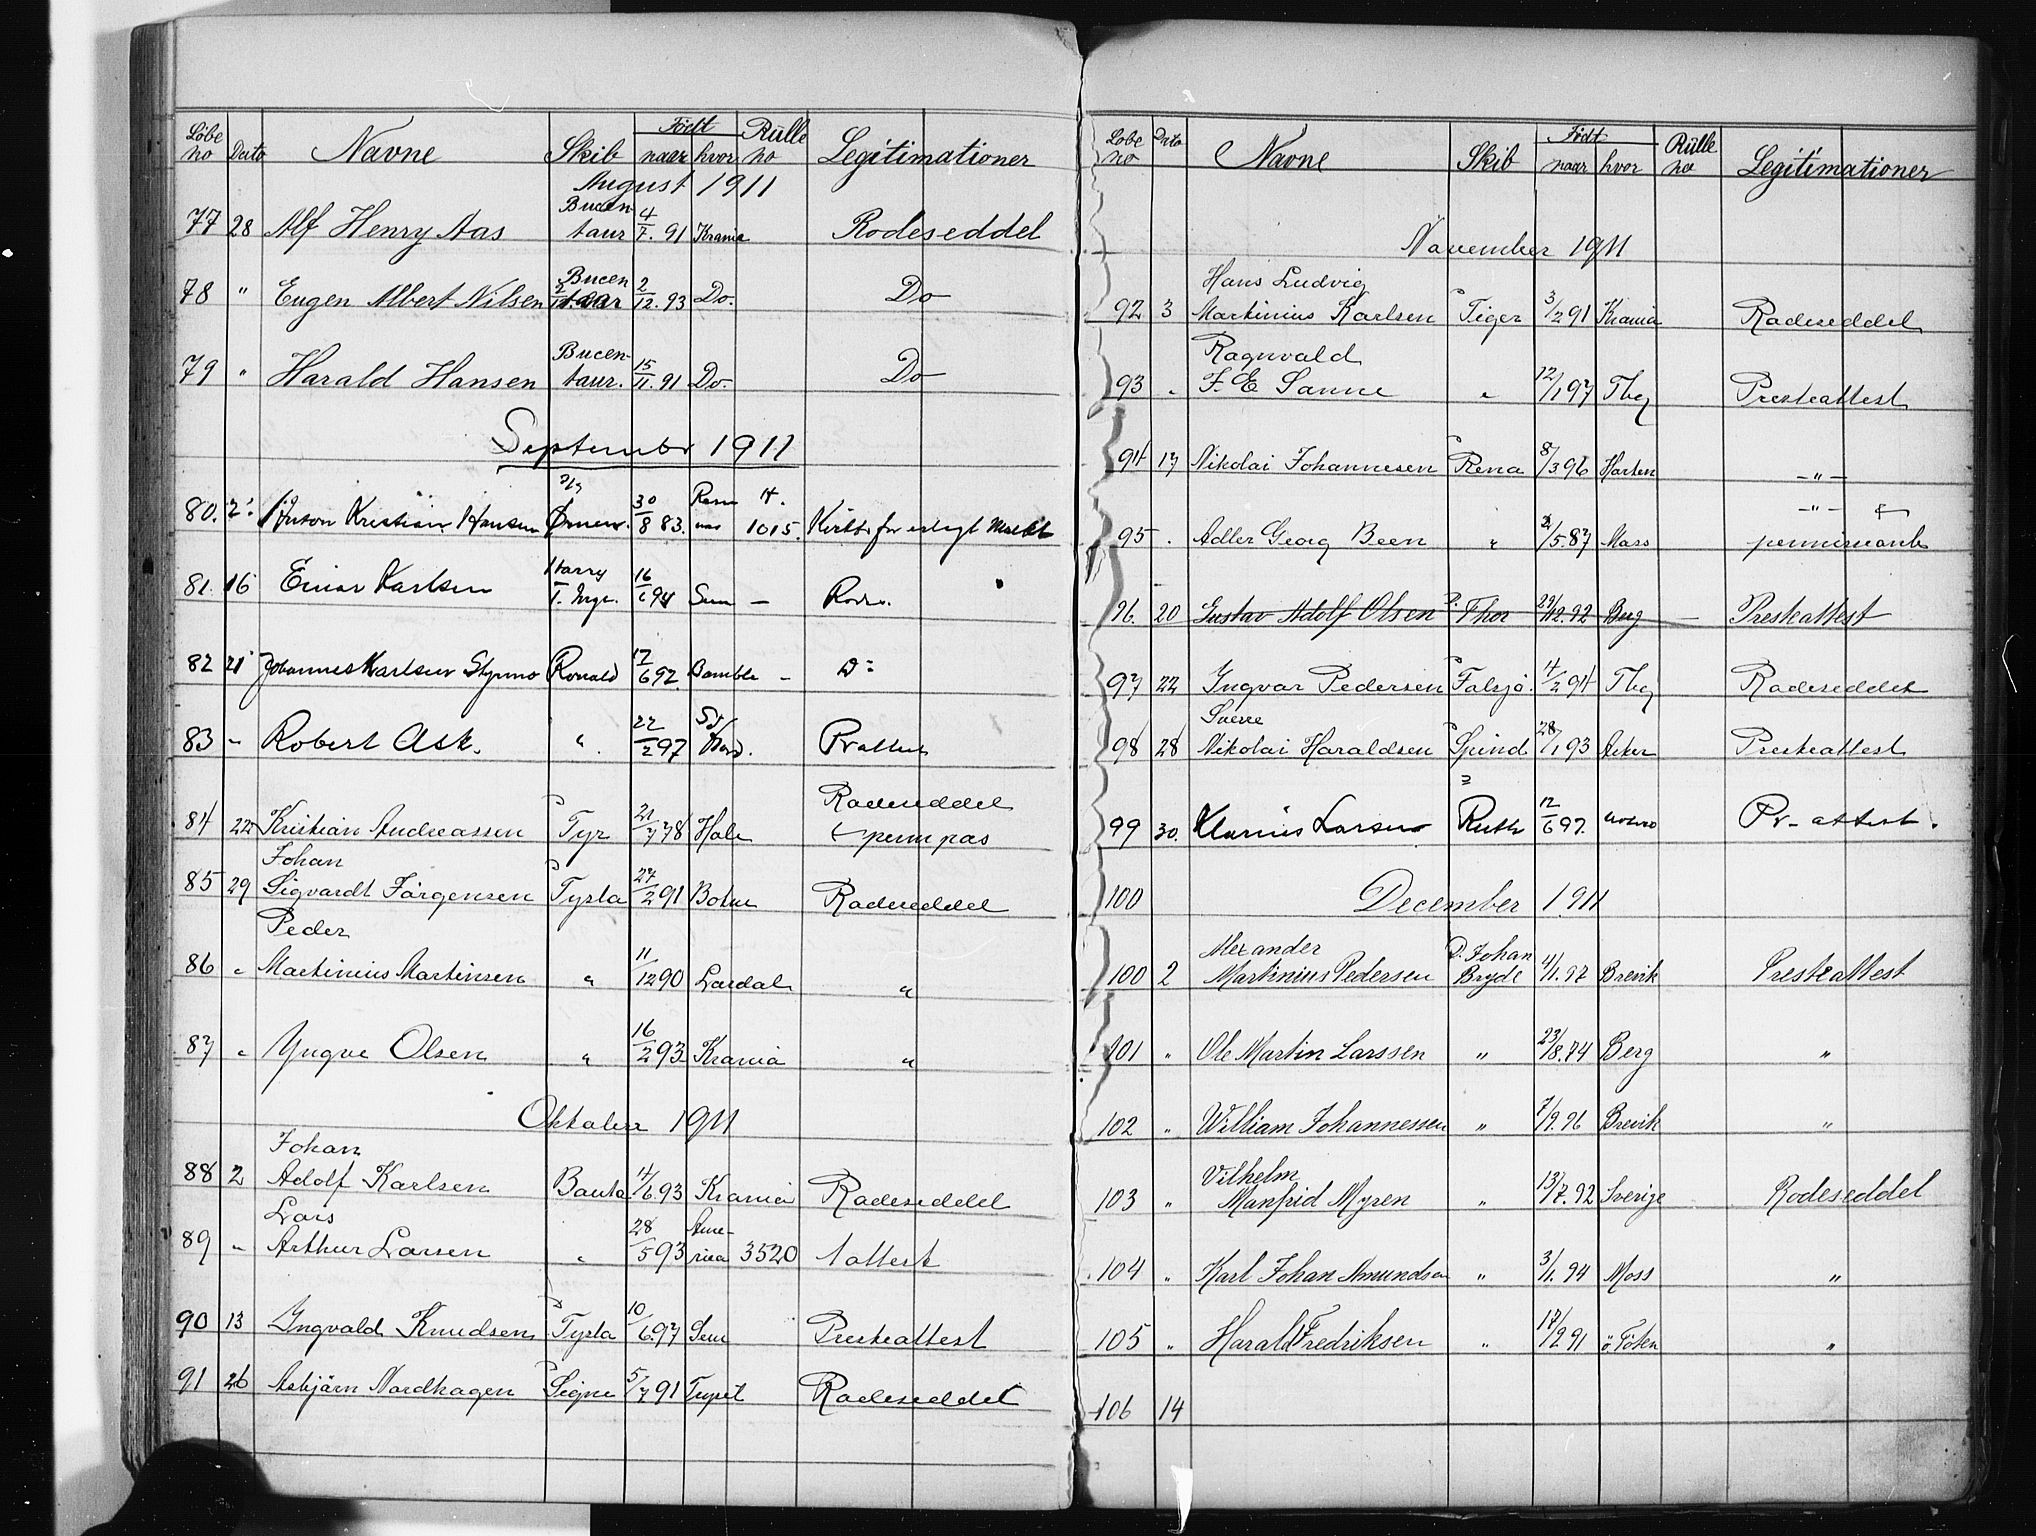 Løbe no Dato Navne Skib Født naar hvor Rulle no Legitimationer
August 1911
77 28 Alf Henry Aas Bucentaur 4/7. 91 Krania Rodeseddel
78 " Eugen Albert Nilsen Bucentaur 2/12. 93 Do. Do
79 " Harald Hansen Bucentaur. 15/11. 91 Do. Do
September 1911
80. 2. Anton Kristian Hansen Ørnen. 30/8 83. 1015. Kvitt for erlagt
81. 16 Einar Karlsen Harry T. Inge. 16/6 94 Sem — Rods.
82 21 Johannes Karlsen Stymno Ronald 17/6 92. Bamble – Do
83 – Robert Ask. " 22/2 97 Pr attest
84 22 Kristian Andreassen Tyr 21/7 78 Hole Rodeseddel + perm pas
85 29 Johan Sigvardt Jørgensen Tysla 27/2 91 Botne Rodeseddel
86 " Peder Martinius Martinsen " 11/12 90 Lardal "
87 " Yngve Olsen " 16/2 93 Krania "
Oktober 1911
88 2 Johan Adolf Karlsen Bauta 4/6. 93 Krania Rodeseddel
89 " Lars Arthur Larsen " 28/5 93 Amerika 3520 1 attest
90 13 Ingvald Knudsen Tysla 10/6 97 Sem Presteattest
91 26 Asbjørn Nordhagen Signe 5/7 91 Rodeseddel
Løbe no Dato Navne Skib Født naar hvor Rulle no Legitimationer
November 1911
92 3 Hans Ludvig Martinius Karlsen Tiger 3/2 91 Krania Rodeseddel
93 " Ragnvald F. E Sanne " 12/1 97 Tbg Presteattest
94 17 Nikolai Johannesen Rena 8/3 96 Horten – " –
95 . Adler Georg Been " 2/5. 87 Moss – " – +
96. 20 Gustav Adolf Olsen D. Thor 29/12. 92 Berg — Presteattest
97 22 Ingvar Pedersen Falsjö. 4/2 94 Tbg Rodeseddel
98 28 Sverre Nikolai Haraldsen Spind 28/1 93 Aker Presteattest
99 30. Klarius Larsen Ruth 12/6 97. Pr- attest.
100 December 1911
100 2 Alexander Martinius Pedersen D. Johan Bryde 4/1. 97 Brevik Presteattest
101 " Ole Martin Larssen " 23/8. 74 Berg "
102 " William Johannessen " 7/9. 96 Brevik "
103 " Vilhelm Manfrid Myren " 13/7. 92 Sverige Rodeseddel
104 " Karl Johan Amundsen " 3/1. 94 Moss "
105 " Harald Fredriksen " 17/9 91 ö Toten "
106 14